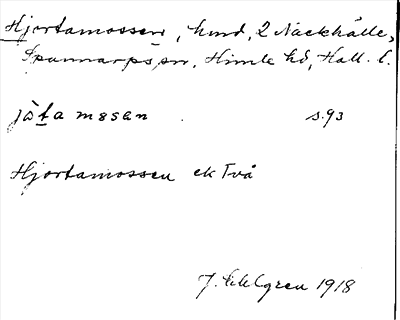 Hjortamossen, hmd, 2 Näckhälle,
Spannarps sn, Himle hd, Hall. l.
jo̊ta mɵsan s. 93
Hjortamossen ek Två
J. Kihlgren 1918